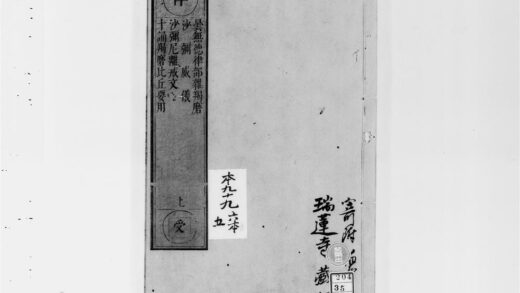 曇無德律部雜羯磨
沙彌威儀
沙彌尼離戒文
十誦羯磨比丘要用
七
受
本九十九
六本
五
寄附
瑞蓮寺藏
294
35